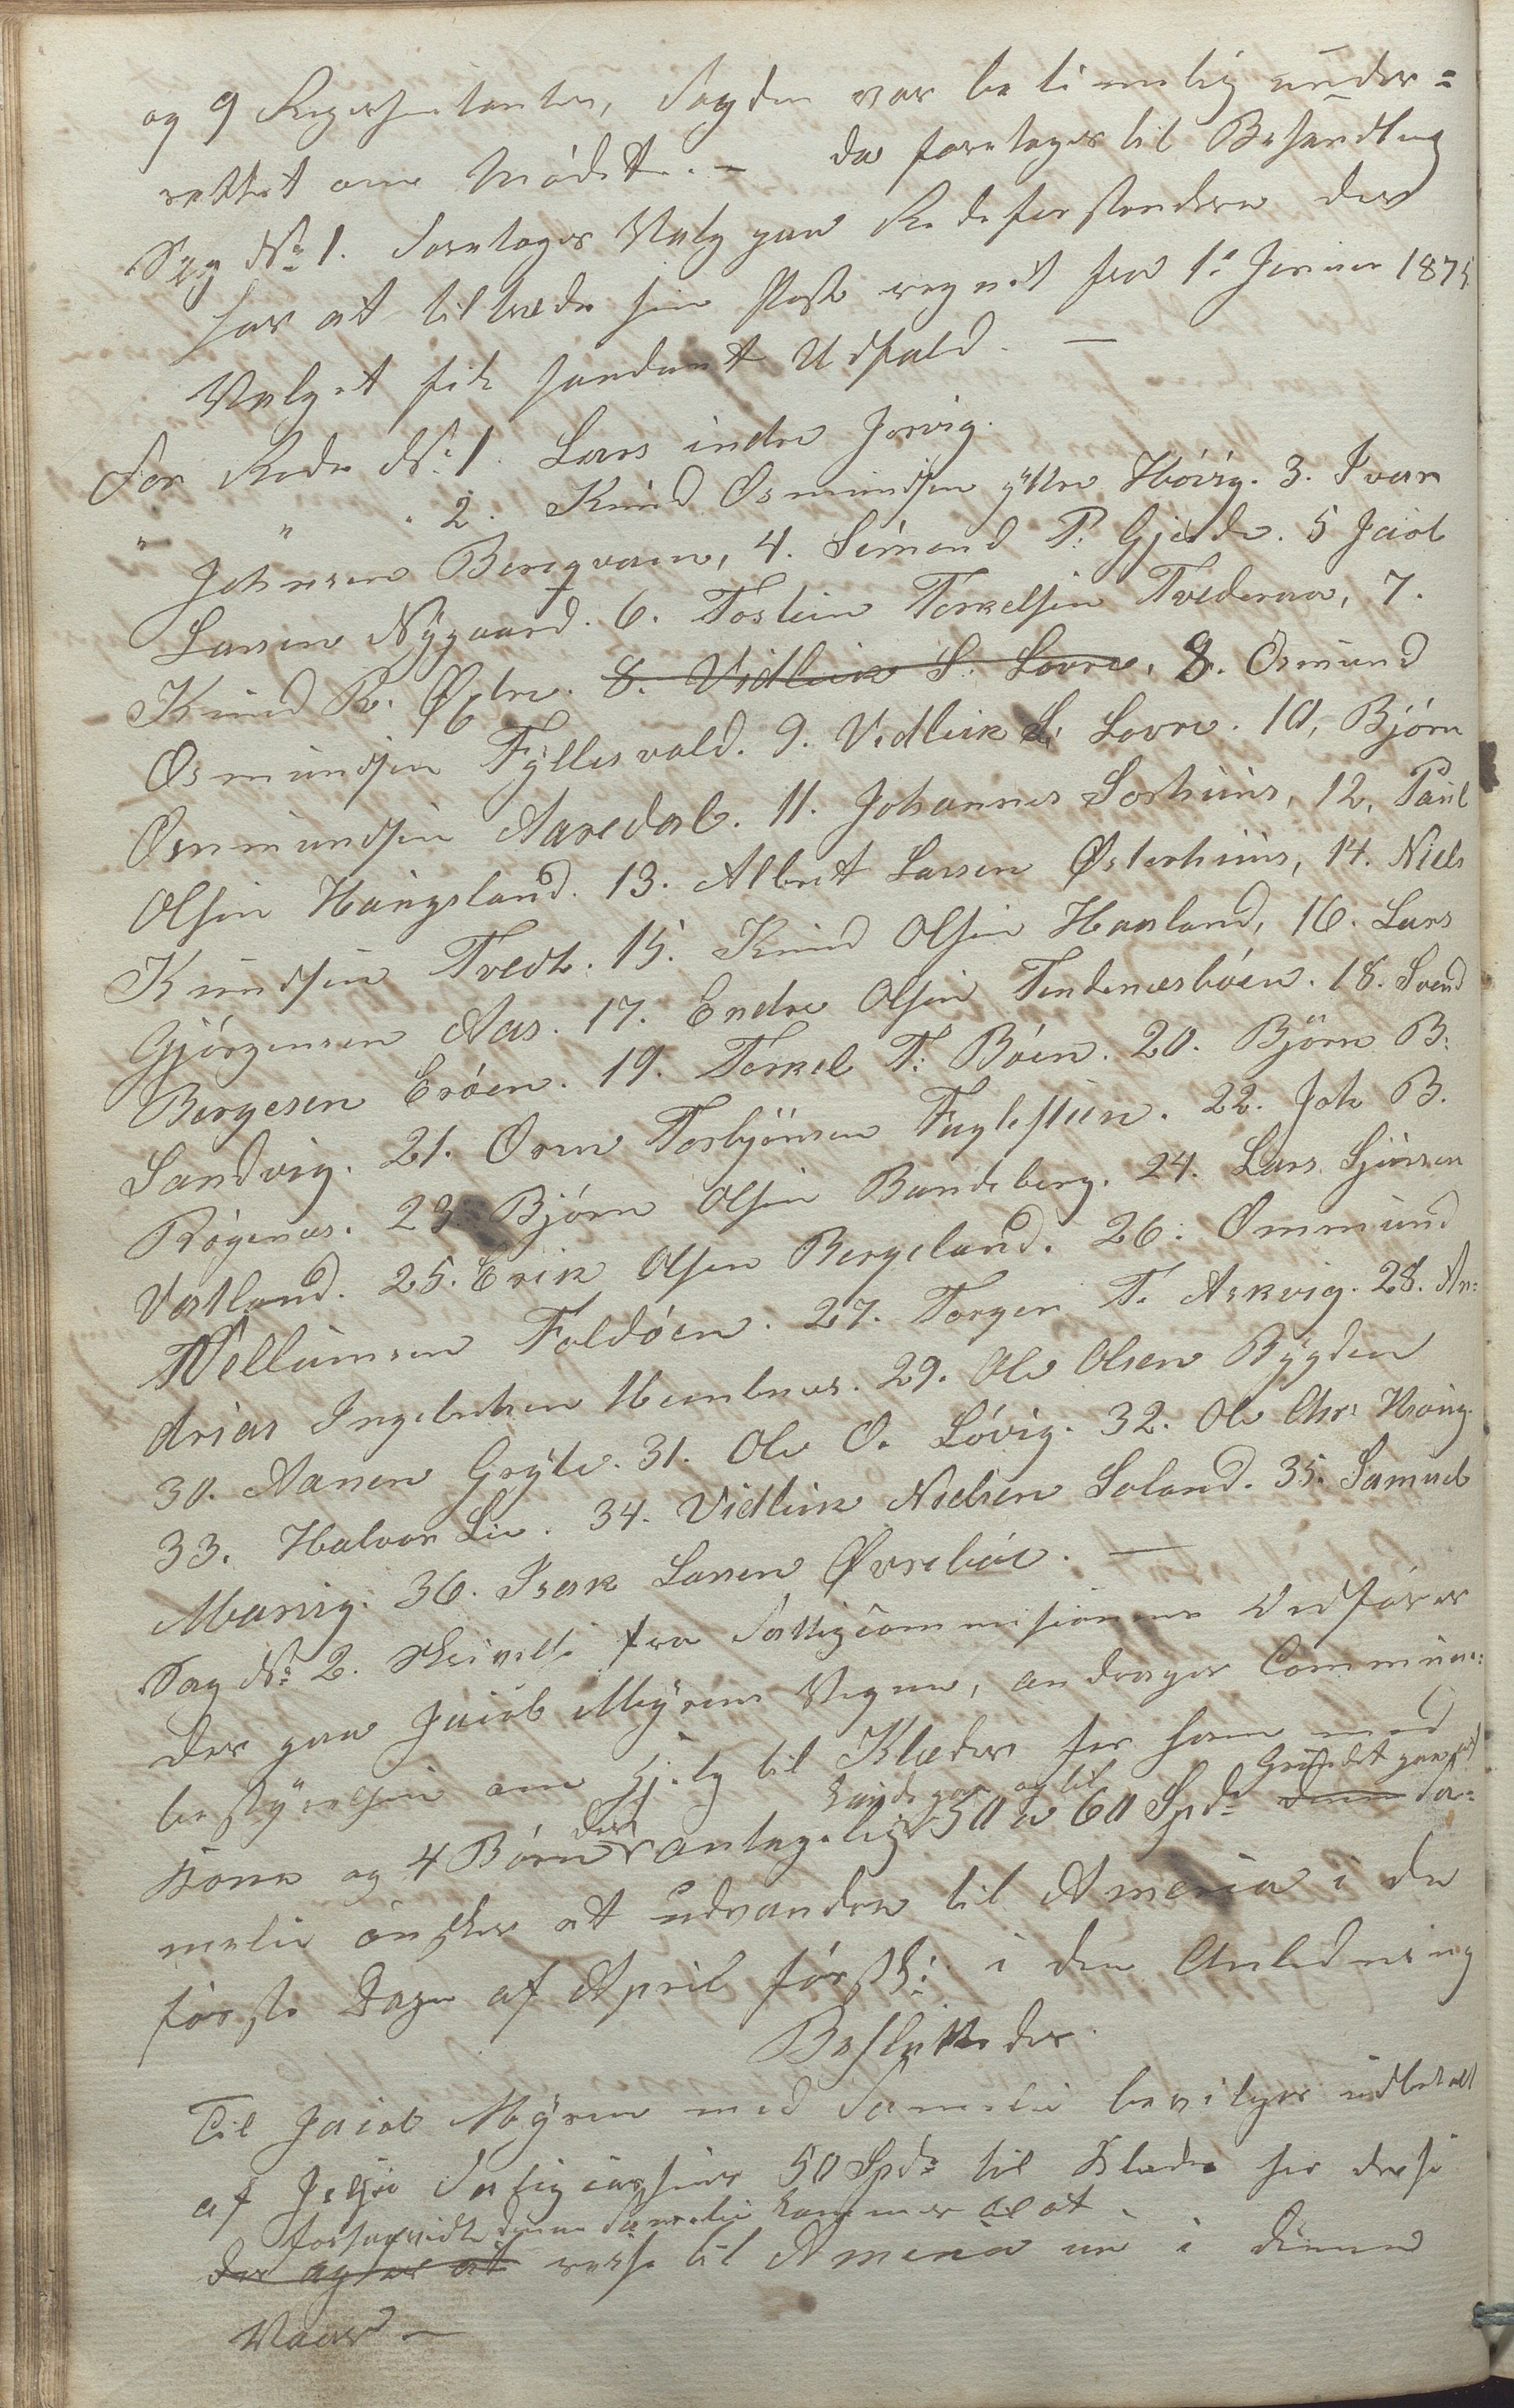 og 9 Repræsentanter, Sagden var betimelig under=
rettet om Mödet. — da foretages til Behandling
Sag No 1. Foretages Valg paa Rodeforstandere der
har at tiltræde sin Post regnet fra 1e Januar 1875
Valget fik saadant Udfald. —
For Rode No 1. Lars indre Jørvig.
" " " 2. Knud Osmundsen ÿtre Høivig. 3. Ivar
Johnsen Bergqvam, 4. Simond P: Gjerde. 5 Jacob
Larsen Nÿgaard. 6. Tostein Torkelsen Tvederaa, 7.
Knud R. Østre. 8. Vidleik S. Lovra, 8. Osmund
Osmundsen Fÿllesvold. 9. Vidleik L: Lovra. 10, Björn
Osmundsen Aaredal. 11. Johannes Sorhuus, 12, Paul
Olsen Haugsland. 13. Albert Larsen Østerhuus, 14. Niels
Knudsen Tvedt. 15. Knud Olsen Haaland, 16. Lars
Gjörgensen Aas. 17. Endre Olsen Tendenesböen. 18. Svend
Børgesen Eröen. 19. Torkel T: Böen. 20. Björn B:
Sandvig. 21. Orm Torbjönsen Fuglestein. 22. Joh B.
Rögenæs. 23 Björn Olsen Bandeberg. 24. Lars Sjursen
Vatland. 25. Erik Olsen Bergeland. 26. Ommund
Villumsen Foldöen. 27. Torger T. Askvig. 28. An=
drias Ingebretsen Hembnæs. 29. Ole Olsen Bÿgden
30. Aanen Grÿte. 31. Ole O. Lövig. 32. Ole Chr: Haug.
33. Halvor Lie. 34. Vidleik Nielsen Soland. 35. Samuel
Marvig. 36. Isak Larsen Øvreböe. —
Sag No 2. Skrivelse fra Fattigcommisionen Vedfører
der paa Jacob Mÿrens Vegne, andrager Commune=
bestÿrelsen om Hjelp til Klæder for ham med
Kone og 4 Børn der antagelig 50 a 60 Spd denne Fa=
milie ønsker at udvandre til America i de
første Dage af April førstk: i den Anledning
Besluttedes.
Til Jacob Mÿren med Familie bevilges udbetalt
af Jelsø Fattigcasse 50 Spd til Klæder for disse
forsaavidt denne Familie kommer til at
der agter at reise til America nu i denne
Vaar —